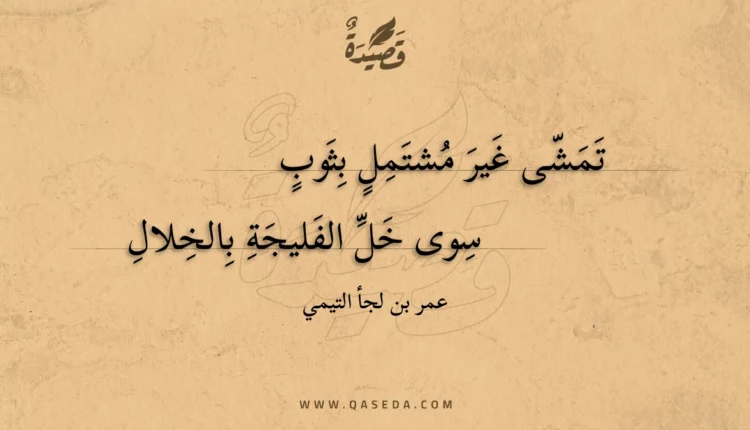 قَصِيدَةٌ
تَمَشّى غَيرَ مُشتَمِلٍ بِثَوبٍ
سِوى خَلِّ الفَليجَةِ بِالخِلالِ
عمر بن لجأ التيمي
WWW.QASEDA.COM